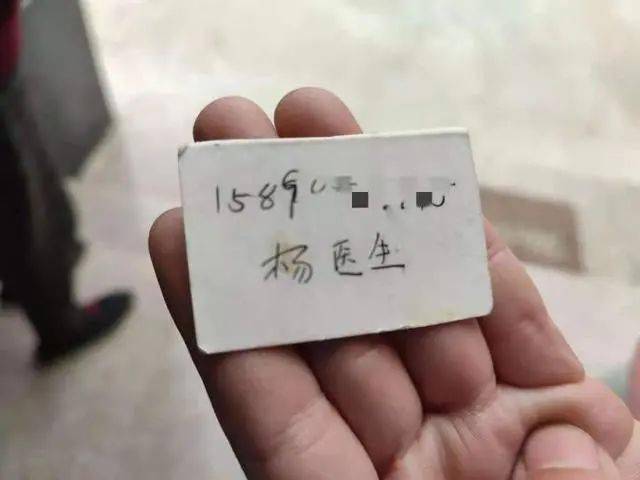 1589
杨医生